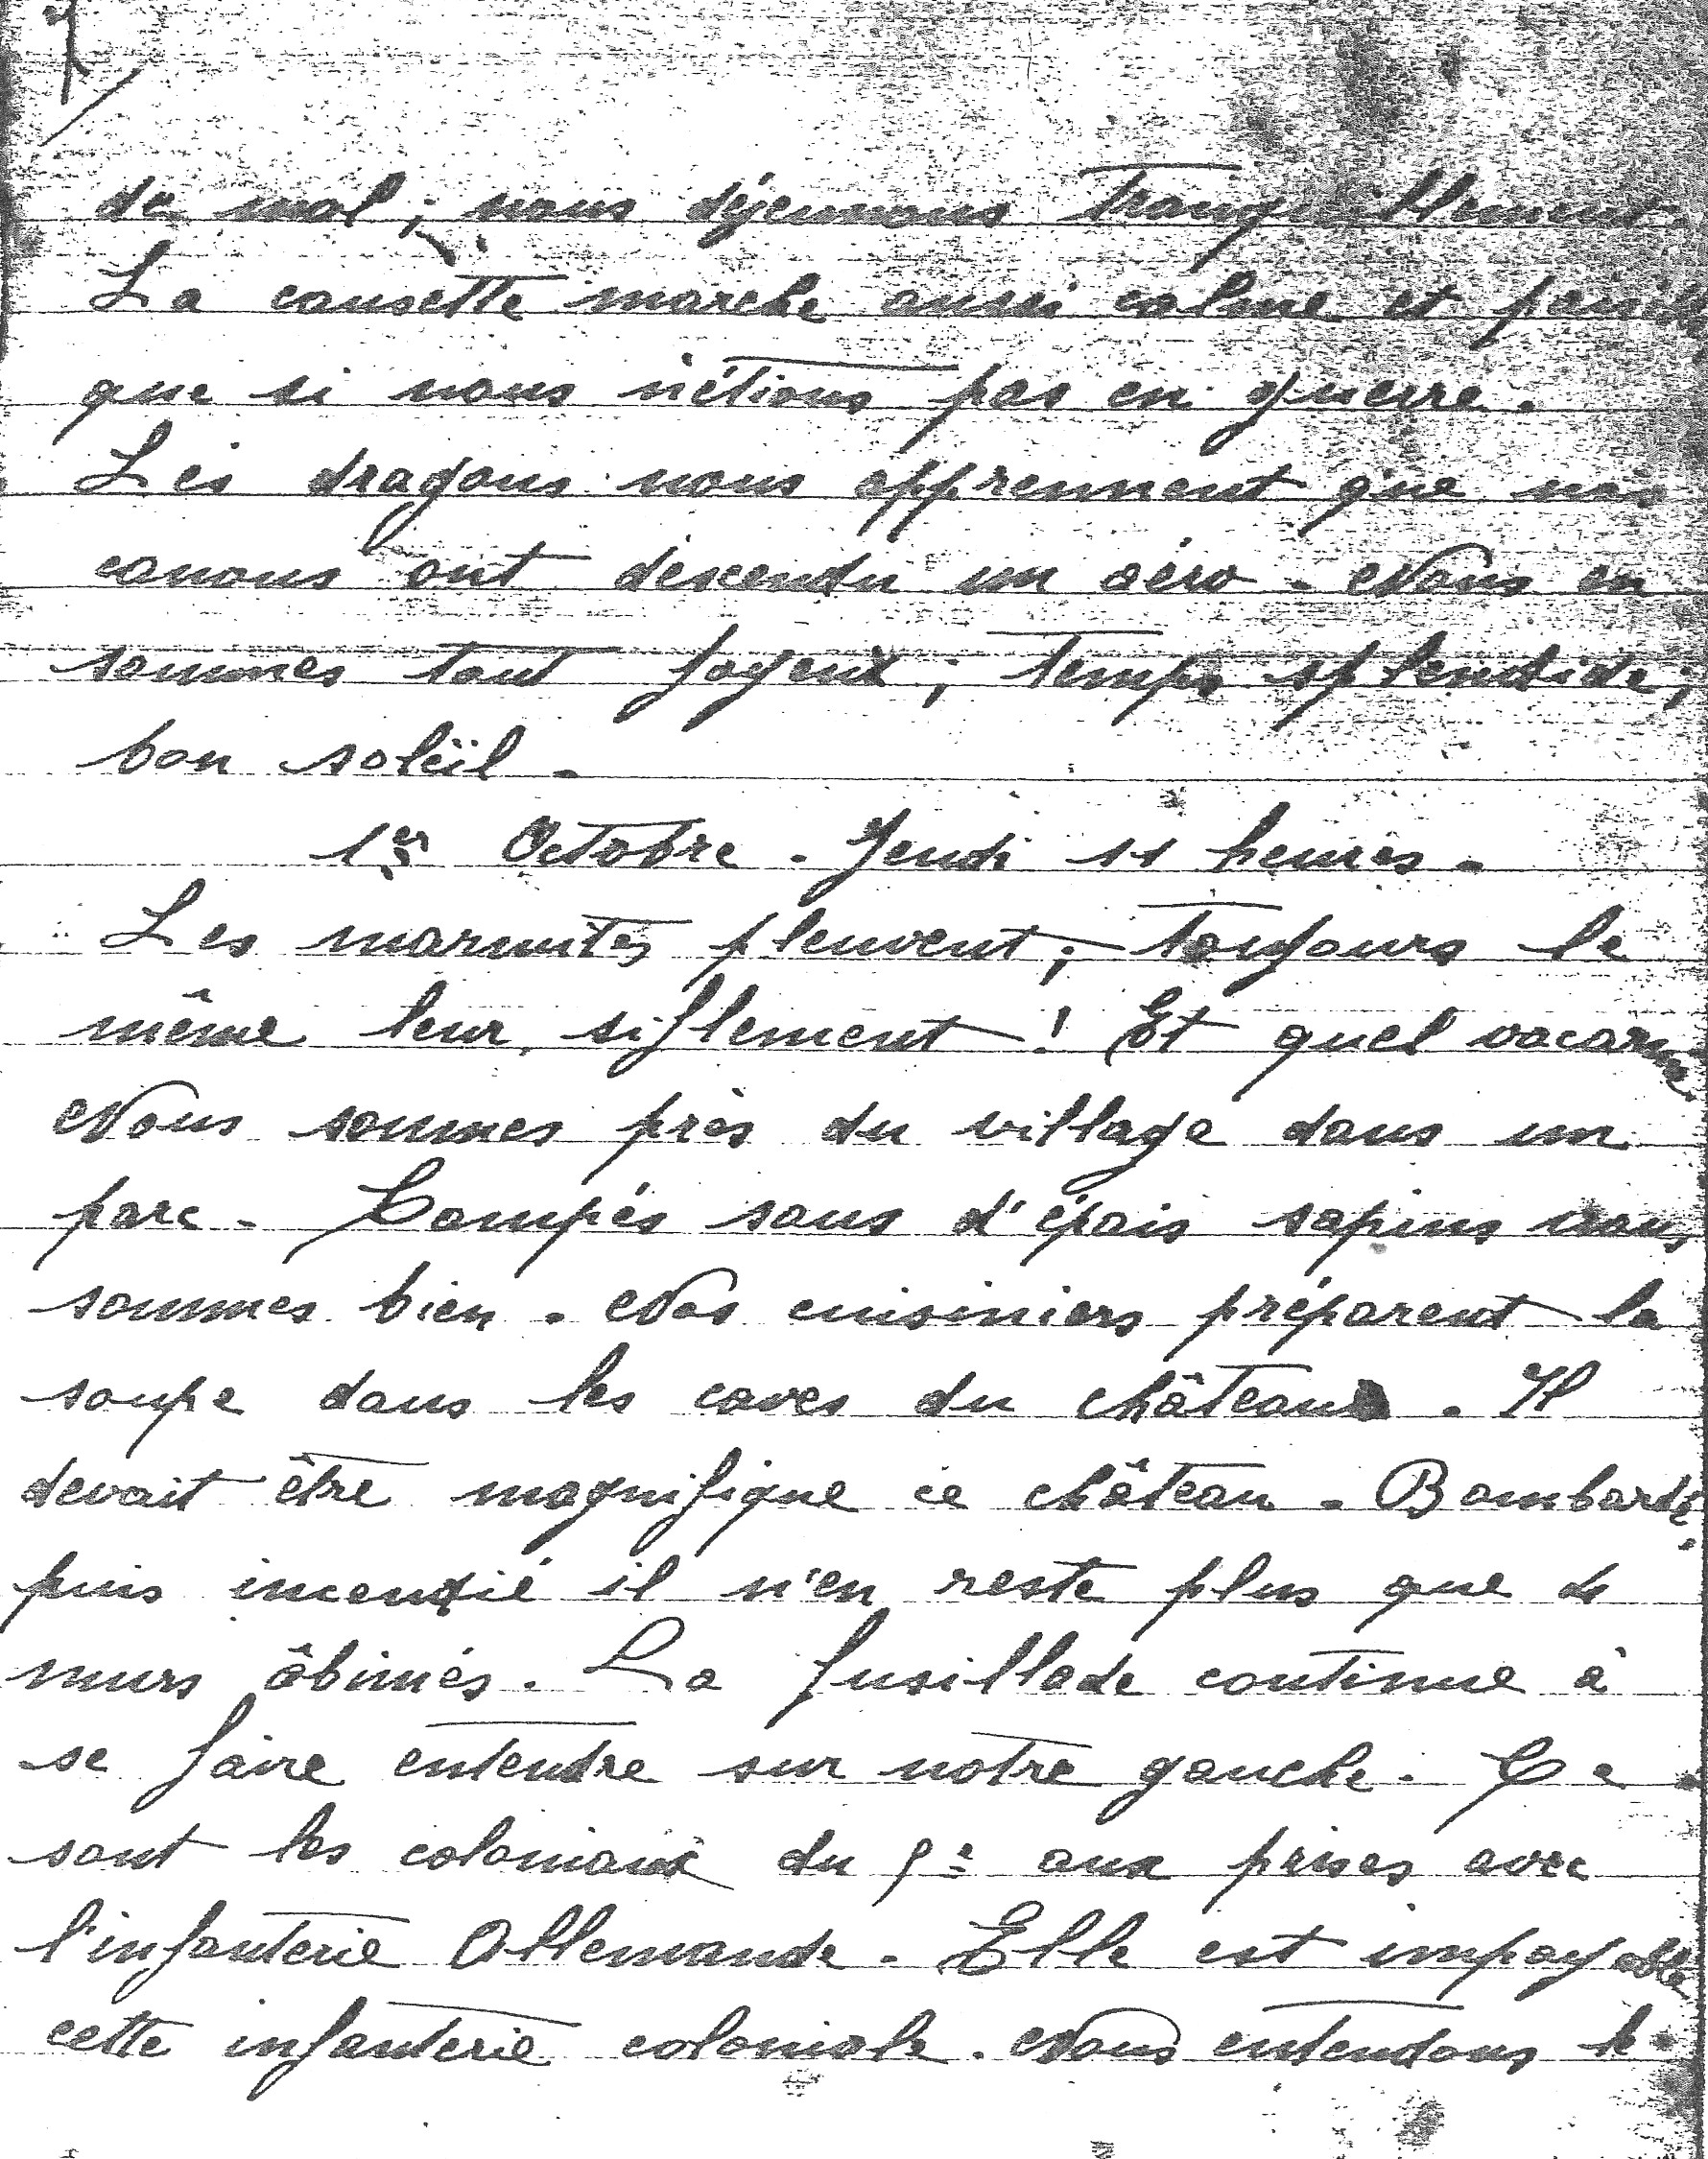 de mal ; nous déjeunons tranquillement
La causette marche aussi calme et
que si nous n'étions pas en guerre.
Les dragons nous apprennent que nos
canons ont descendu un aéro. Nous en
sommes tout joyeux ; temps splendide,
bon soleil.
1er Octobre. Jeudi 11 heures.
Les marmites pleuvent ; toujours le
même leur siflement ! Et quel vacarme
Nous sommes près du village dans un
parc. Campés sous d'épais sapins nous
sommes bien. Nos cuisiniers préparent la
soupe dans les caves du château. Il
devait être magnifique ce château. Bombardé,
puis incendié il n'en reste plus que de
murs âbimés. La fusillade continue à
se faire entendre sur notre gauche. Ce
sont les coloniaux du aux prises avec
l'infanterie Allemande. Elle est impayable
cette infanterie coloniale. Nous entendons le